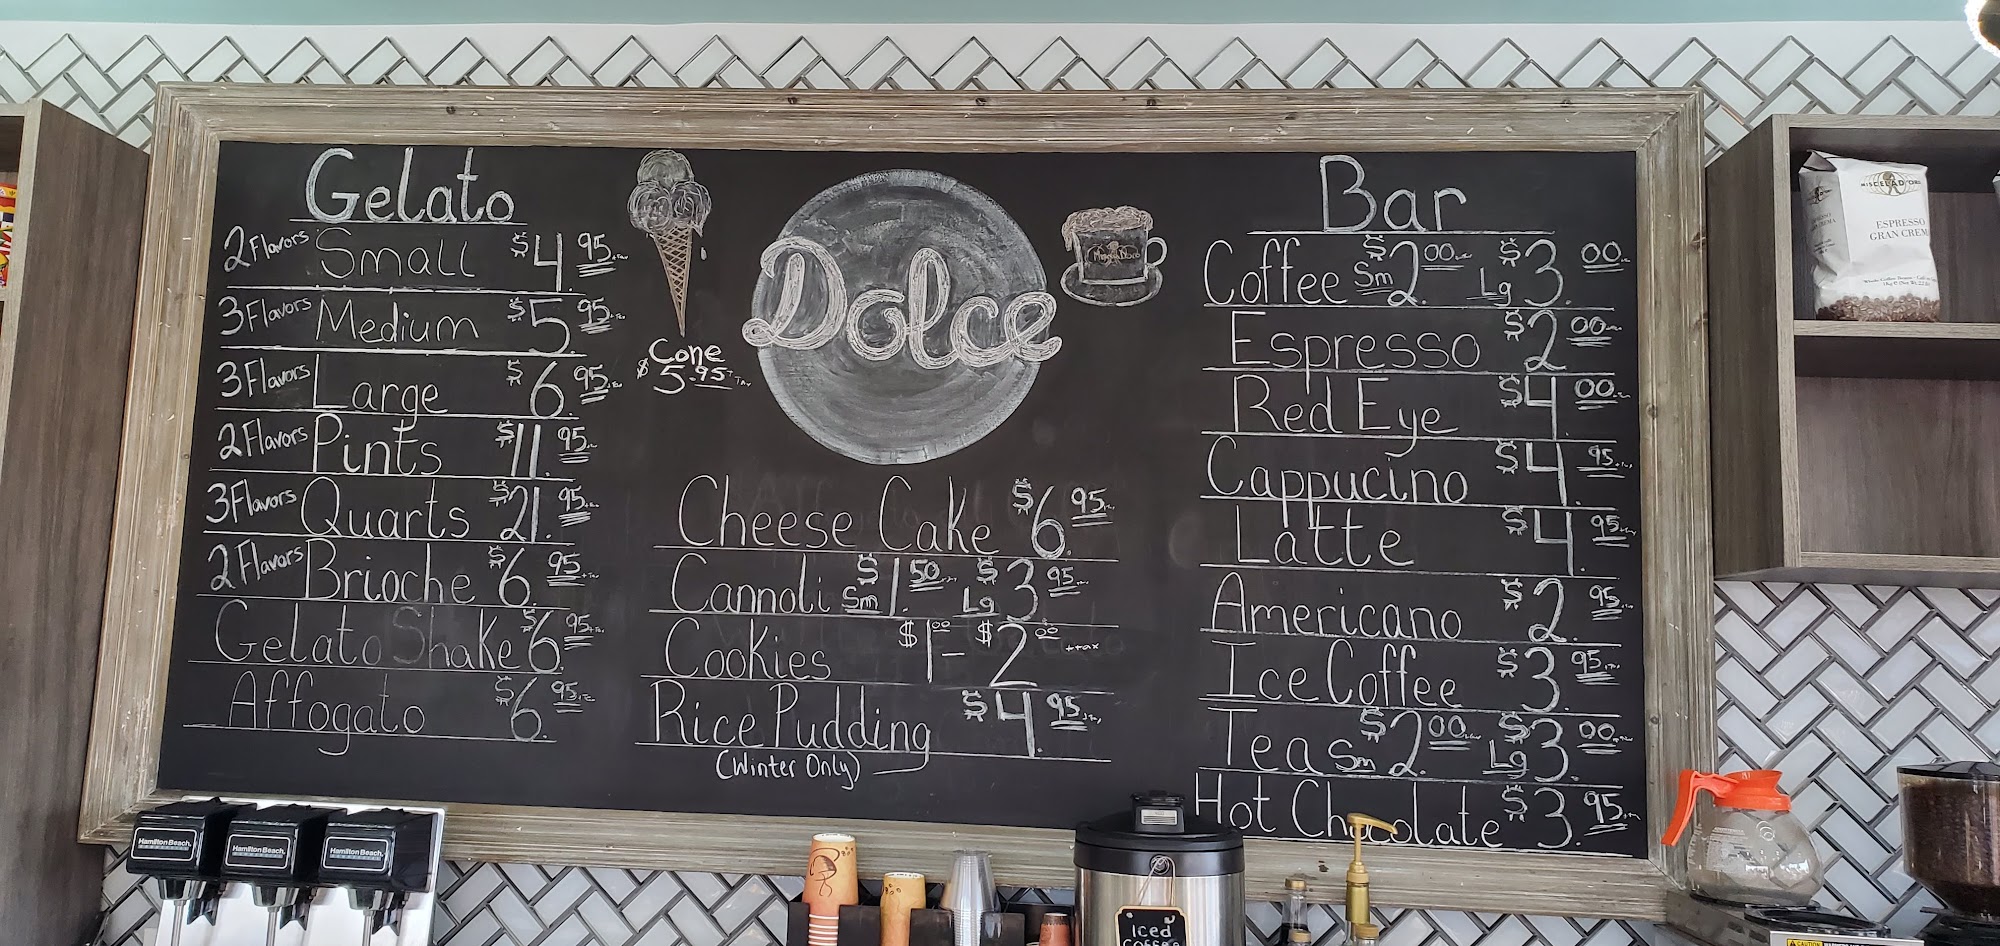 Gelato
2 Flavors Small $4.95 + Tax
3 Flavors Medium $5.95
3 Flavors Large $6.95
2 Flavors Pints $11.95
3 Flavors Quarts $21.95
2 Flavors Brioche $6.95 + Tax
Gelato Shake $6.95 + Tax
Affogato $6.95
Cone
$5.95 + Tax
Dolce
Cheese Cake $6.95
Cannoli Sm $1.50 Lg $3.95
Cookies $1.00 - $2.00 + tax
Rice Pudding $4.95
(Winter Only)
Bar
Coffee Sm $2.00 Lg $3.00
Espresso $2.00
Red Eye $4.00
Cappucino $4.95
Latte $4.95
Americano $2.95
Ice Coffee $3.95
Tea Sm $2.00 Lg $3.00
Hot Chocolate $3.95
MISCELA D'ORO
ESPRESSO
GRAN CREMA
Hamilton Beach
Hamilton Beach
Hamilton Beach
Iced
Coffee
CAUTION